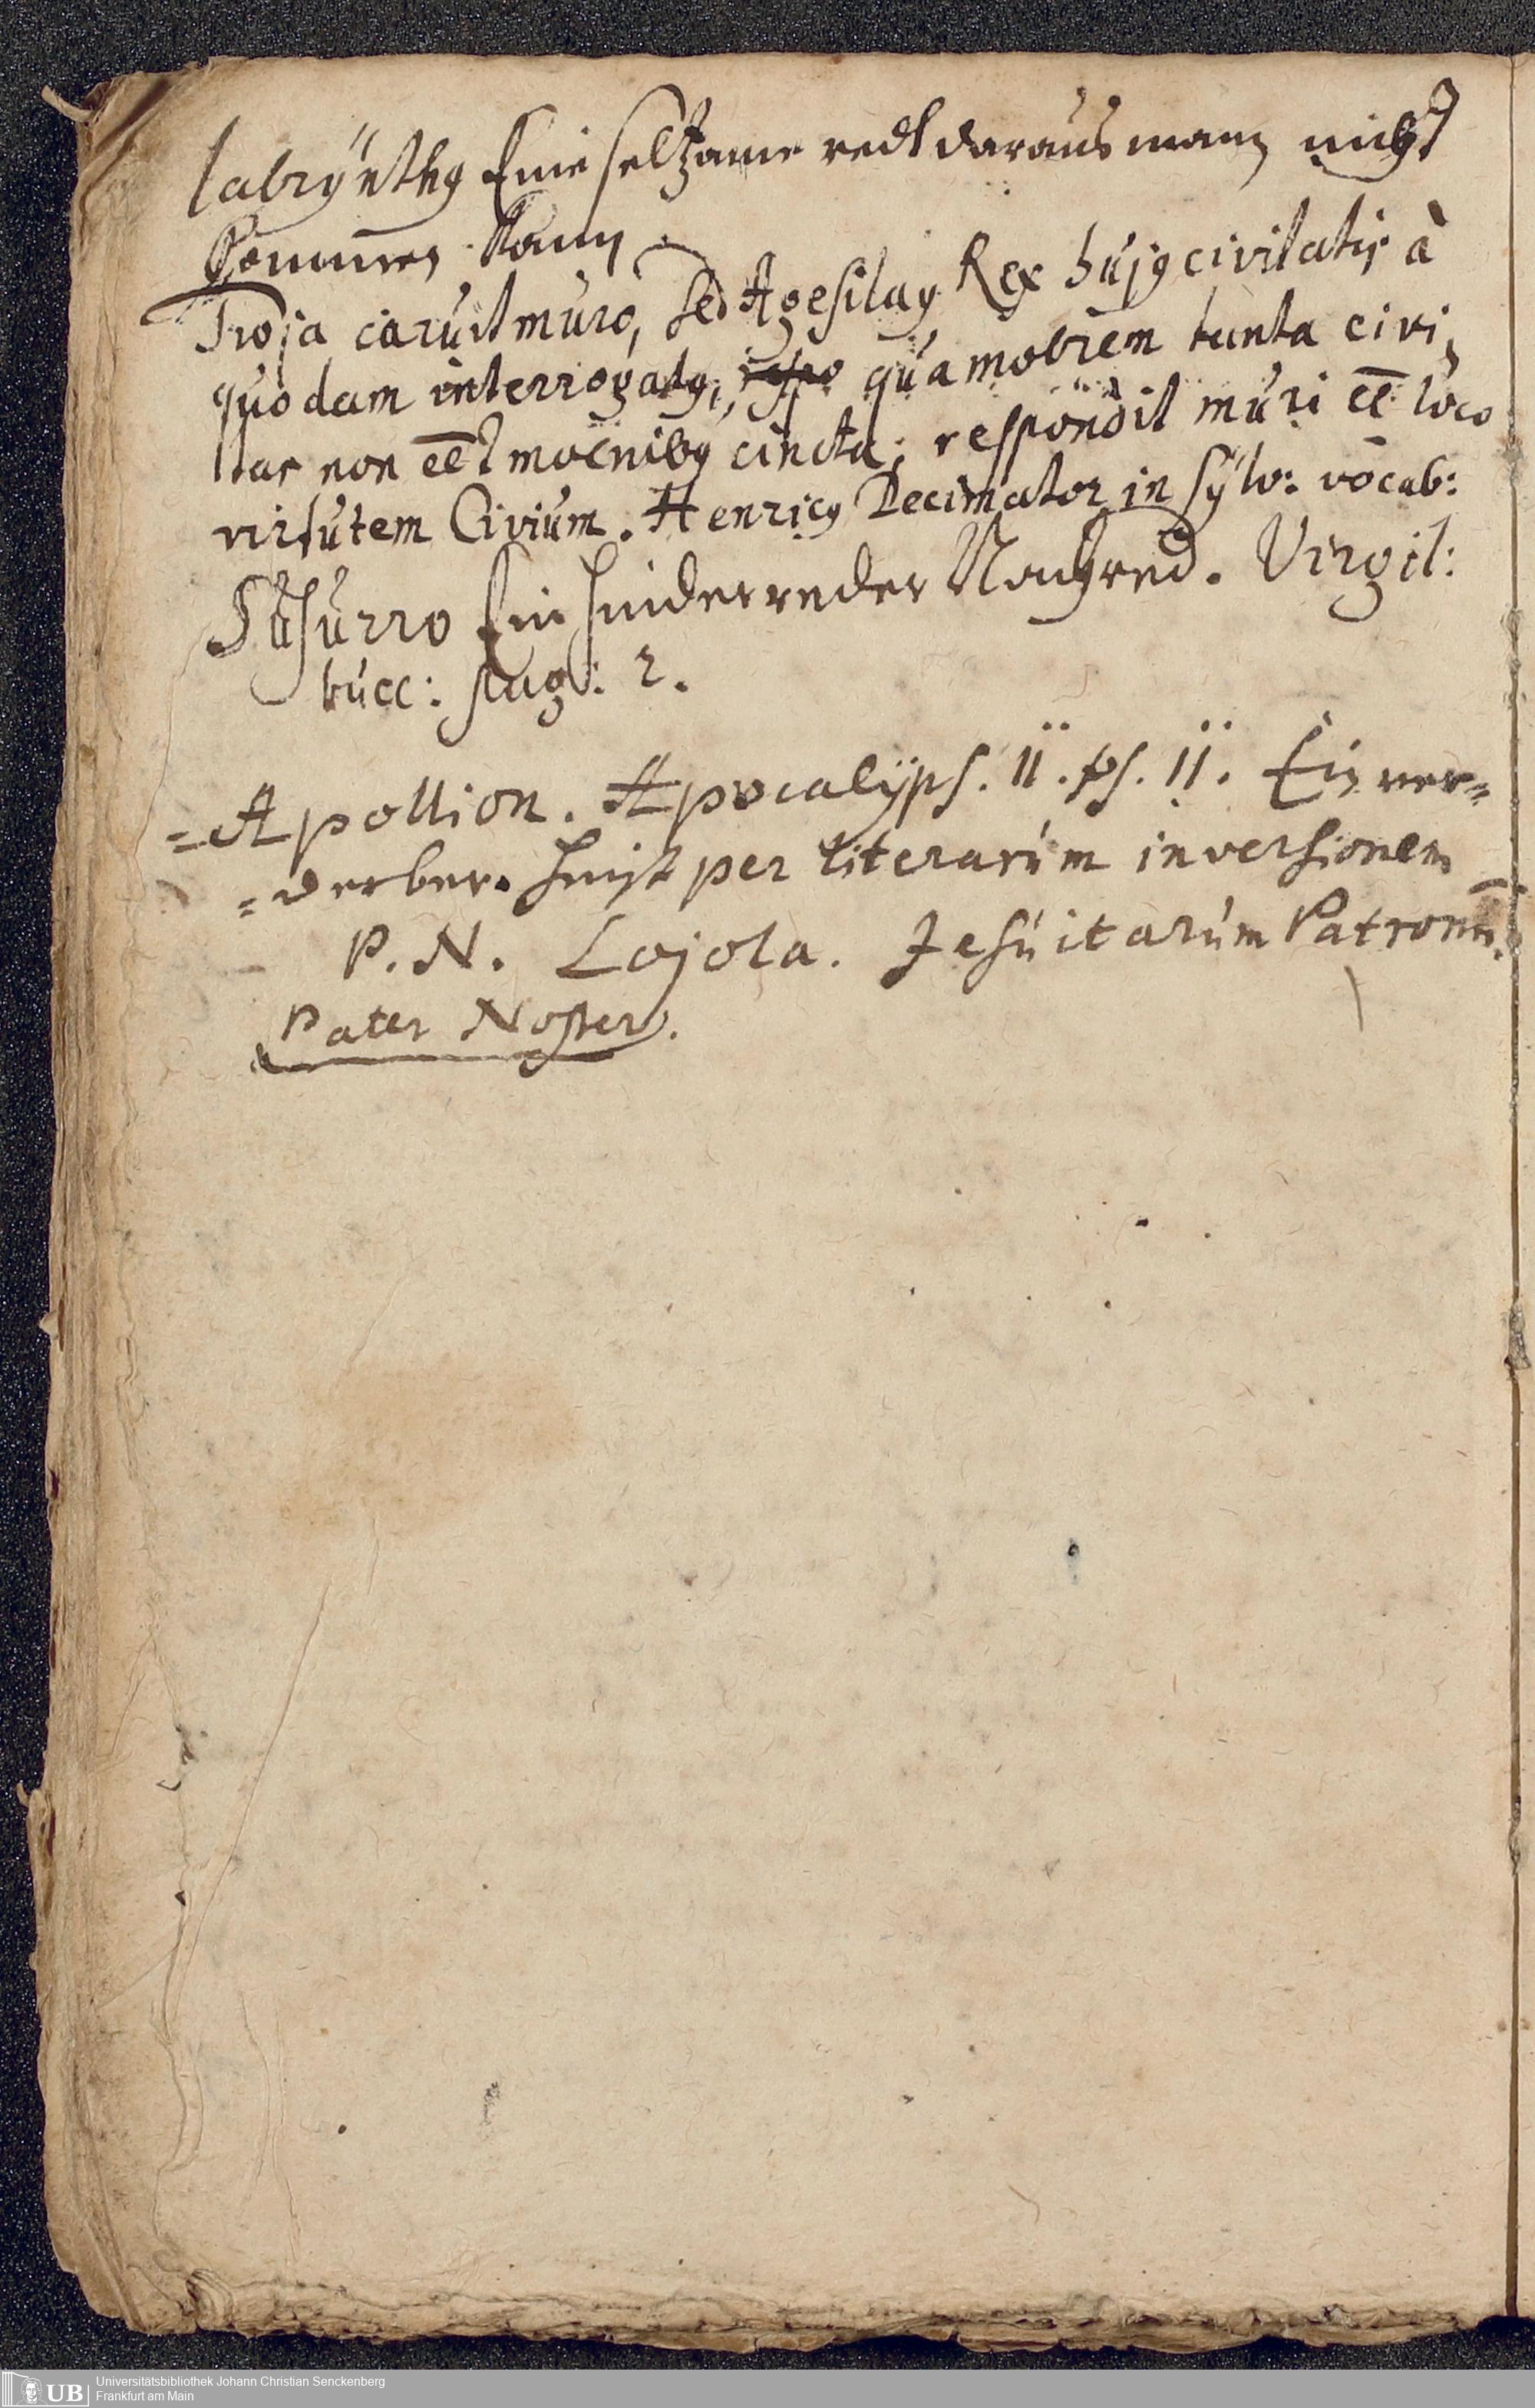 labyrÿnthꝰ Eine seltzame redt daraus mann nicht
kommen kann.
Troja caruit muro, sed Agesilaꝰ Rex hujꝰ civitatis à
quodam interrogatꝰ, quamobrem tanta civi
tas non eēt moenibꝰ cincta; respondit muri eē loco
virtutem Civium. Henricꝰ Decimator in sÿlv: vocab:
Susurro Ein hinderreder Nachred. Virgil:
bucc: pag: 2.
=Apollion. Apocalÿps. 11. ps. 11. Ein ver=
=derber. heist per literarum inversionem
P. N. Lojola. Jesuitarum Patronus.
Pater Noster.
UB Universitätsbibliothek Johann Christian Senckenberg
Frankfurt am Main